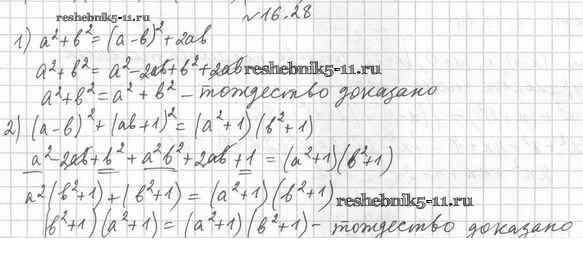 №16.28
reshebnik5-11.ru
1) a²+b²=(a-b)²+2ab
a²+b²=a²-2ab+b²+2ab
reshebnik5-11.ru
a²+b²=a²+b² - тождество доказано
2) (a-b)²+(ab+1)²=(a²+1)(b²+1)
a²-2ab+b²+a²b²+2ab+1=(a²+1)(b²+1)
a²(b²+1)+(b²+1)=(a²+1)(b²+1)
reshebnik5-11.ru
(b²+1)(a²+1)=(a²+1)(b²+1)- тождество доказано